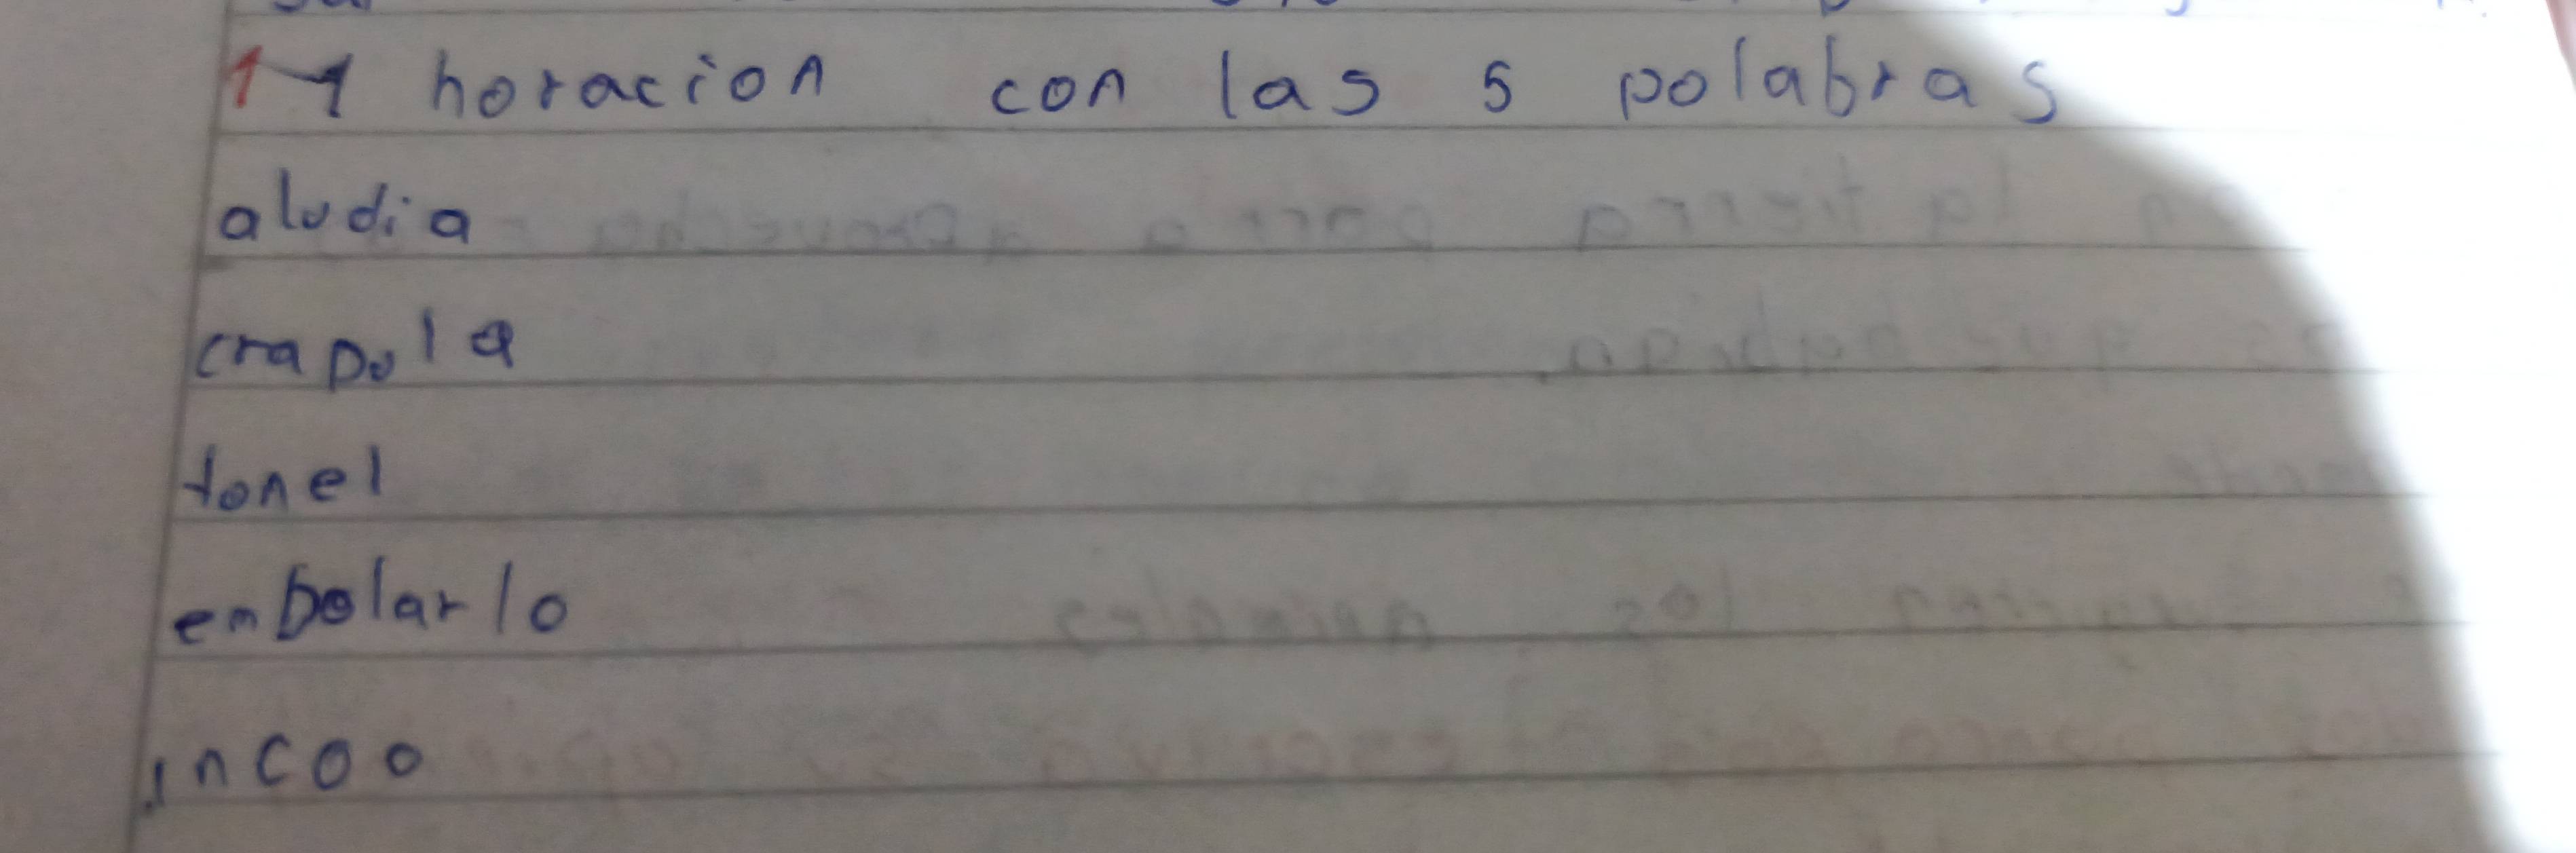 1-1 horacion con las 5 polabras
aludia
crapula
tonel
enbolarlo
incoo